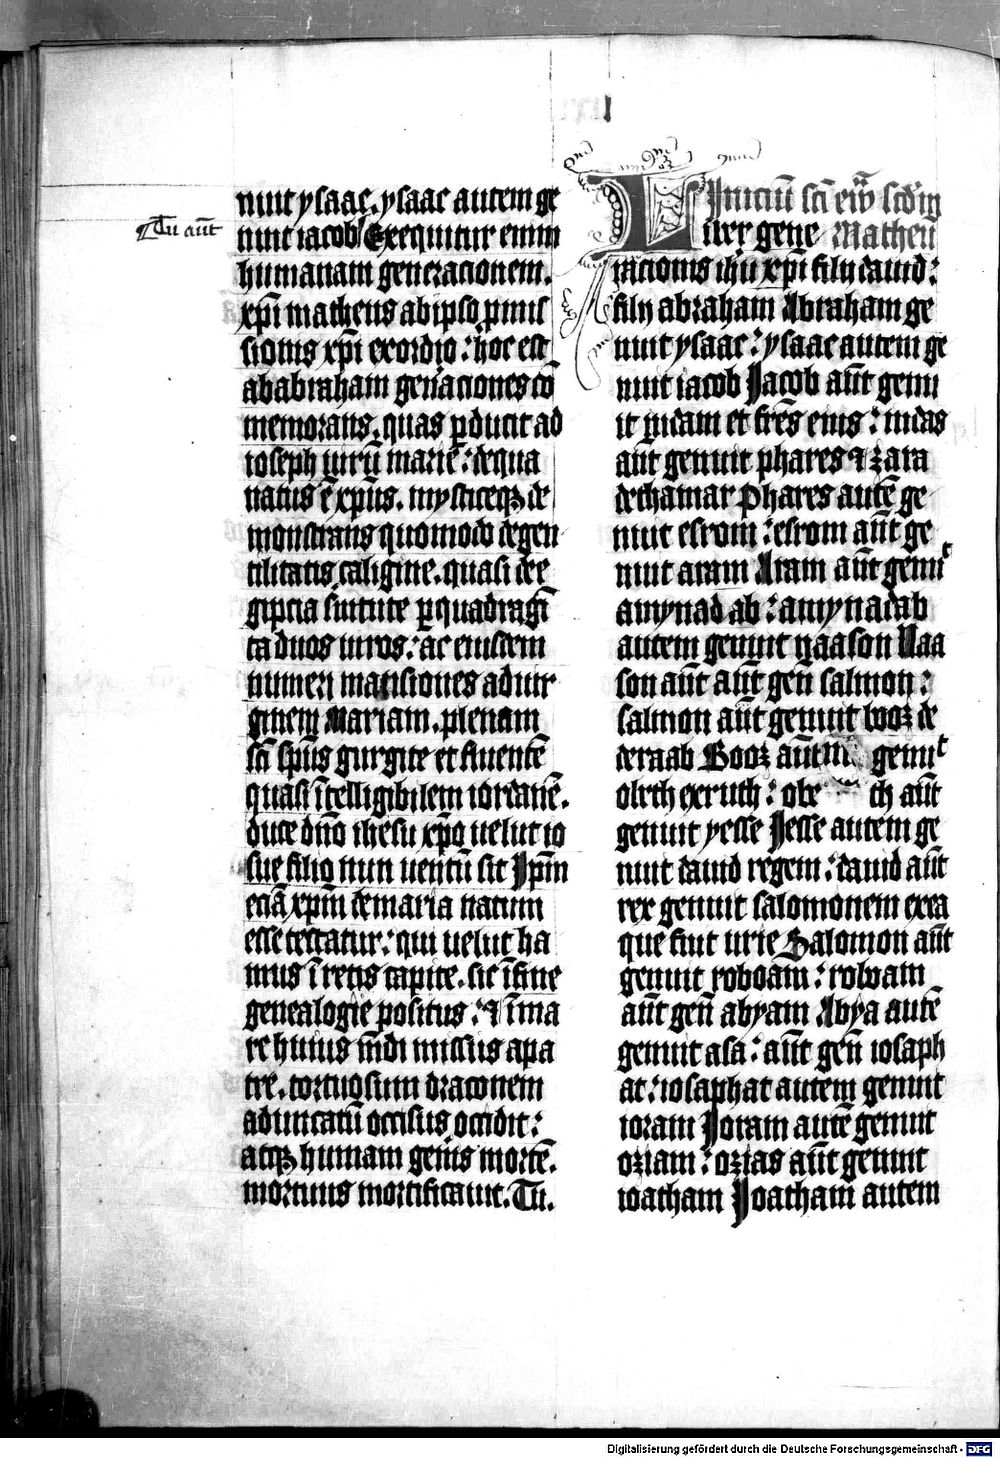 nuit ysaac. ysaac autem ge
Tu aūt
nuit iacob Exequitur enim
humanam generacionem.
xp̄i matheus ab ipso p̱mis
sionis xp̄i exordio : hoc est
ab abraham gen̄aciones cō
memorans. quas ꝑducit ad
ioseph uirū marie : de qua
natus ē xp̄us. mysticeqꝫ de
monstrans quomodo de gen
tilitatis caligine. quasi de e
gipcia seruitute ꝑ quadragī
ta duos uiros : ac eiusdem
numeri mansiones ad uir
ginem Mariam. plenam
sc̄i sp̄us gurgite et fluentē
quasi ītelligibilem iordanē.
duce dn̄o ihesu xp̄o uelut io
sue filio nun uentū sit Ip̄m
eciā xp̄m de maria natum
esse testatur : qui uelut ha
mus ī retis capite. sic ī fine
genealogie positus : ⁊ ī ma
re huius mūdi missus a pa
tre. tortuosum draconem
aduncatū occisus occidit :
atqꝫ humani genis mortē.
mortuus mortificauit. Tu.
Iniciū sc̄i ew̄ scd̄m
Liber gene Matheū
racionis ih̄u xp̄i filii dauid :
filii abraham Abraham ge
nuit ysaac : ysaac autem ge
nuit iacob Jacob aūt genu
it iudam et fr̄es eius : iudas
aūt genuit phares ⁊ zara
de thamar Phares autē ge
nuit esrom : esrom aūt ge
nuit aram Aram aūt genuͥᵗ
amynadab : amynadab
autem genuit naason Naa
son aūt aūt gen̄ salmon :
salmon aūt genuit booz de
de raab Booz aūt genuiᵗ
obeth ex ruth : obe th aūt
genuit yesse Jesse autem ge
nuit dauid regem : dauid aūt
rex genuit salomonem ex ea
que fuit urie Salomon aūt
genuit roboam : roboam
aūt gen̄ abyam Abya autē
genuit asa : aūt gen̄ iosaph
at : iosaphat autem genuit
ioram Joram autē genuit
oziam : ozias aūt genuit
ioatham Joatham autem
Digitalisierung gefördert durch die Deutsche Forschungsgemeinschaft - DFG